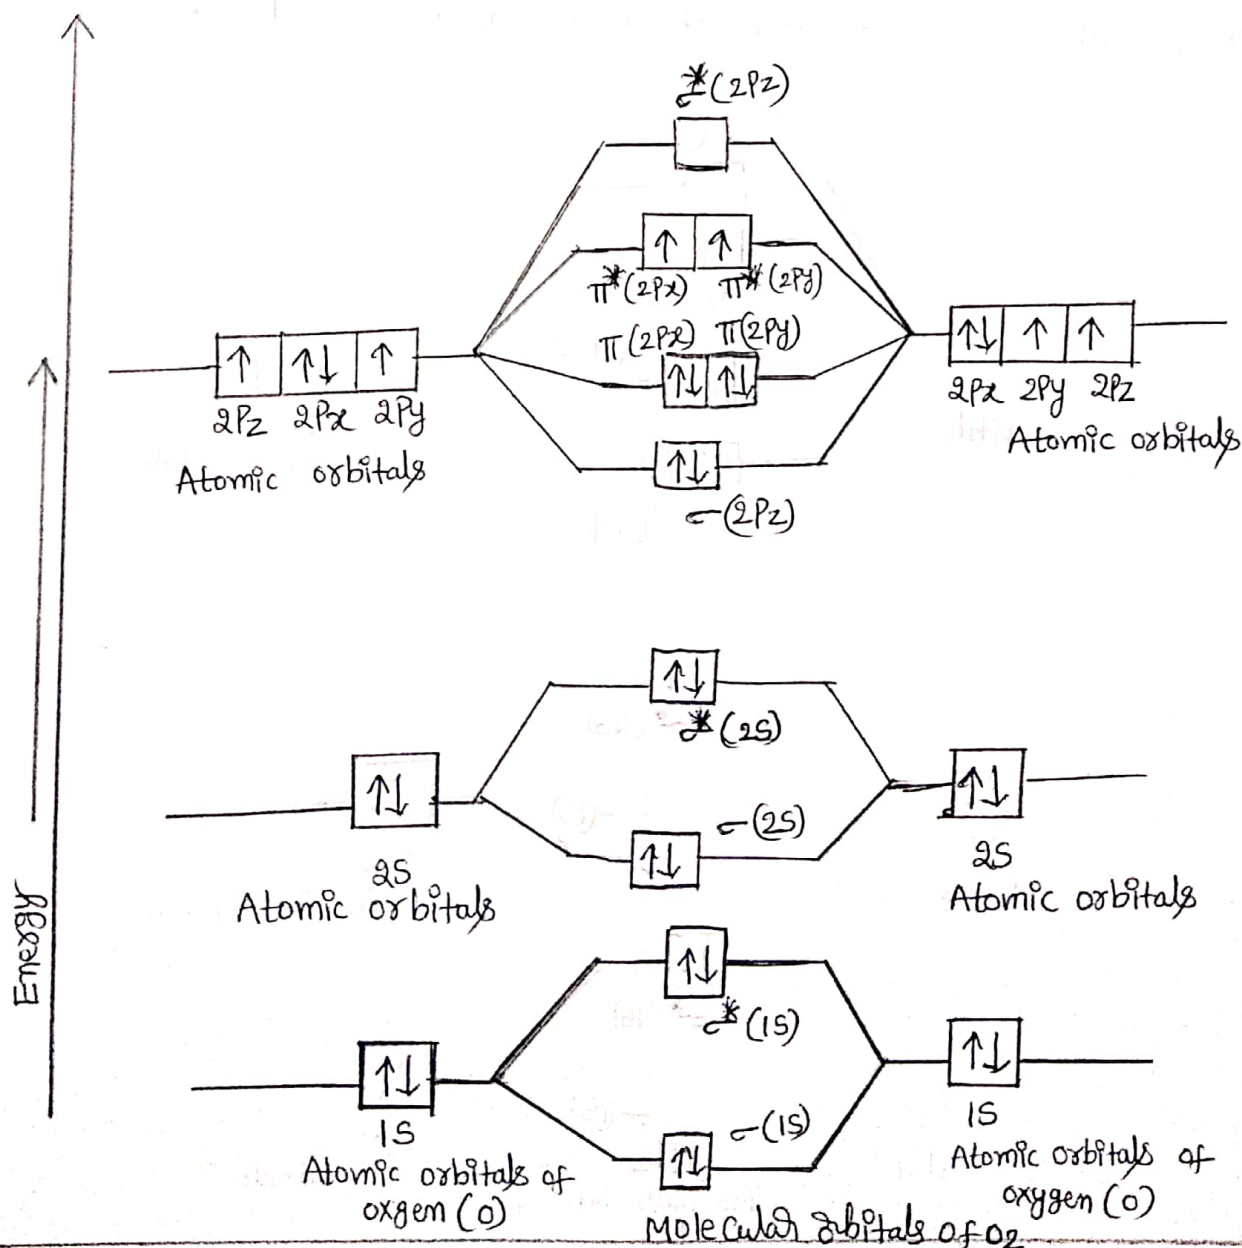 σ*(2Pz)
↑ ↑
π*(2Px) π*(2Py)
π(2Px) π(2Py)
↑ ↑↓ ↑
↑↓ ↑↓
↑↓ ↑ ↑
2Pz 2Px 2Py
2Px 2Py 2Pz
Atomic orbitals
Atomic orbitals
↑↓
σ(2Pz)
↑↓
σ*(2S)
↑↓
↑↓
σ(2S)
↑↓
2S
Atomic orbitals
2S
Atomic orbitals
Energy
↑↓
σ*(1S)
↑↓
↑↓
1S
1S
σ(1S)
↑↓
Atomic orbitals of
oxgen (O)
Atomic orbitals of
oxygen (O)
Molecular orbitals of O2